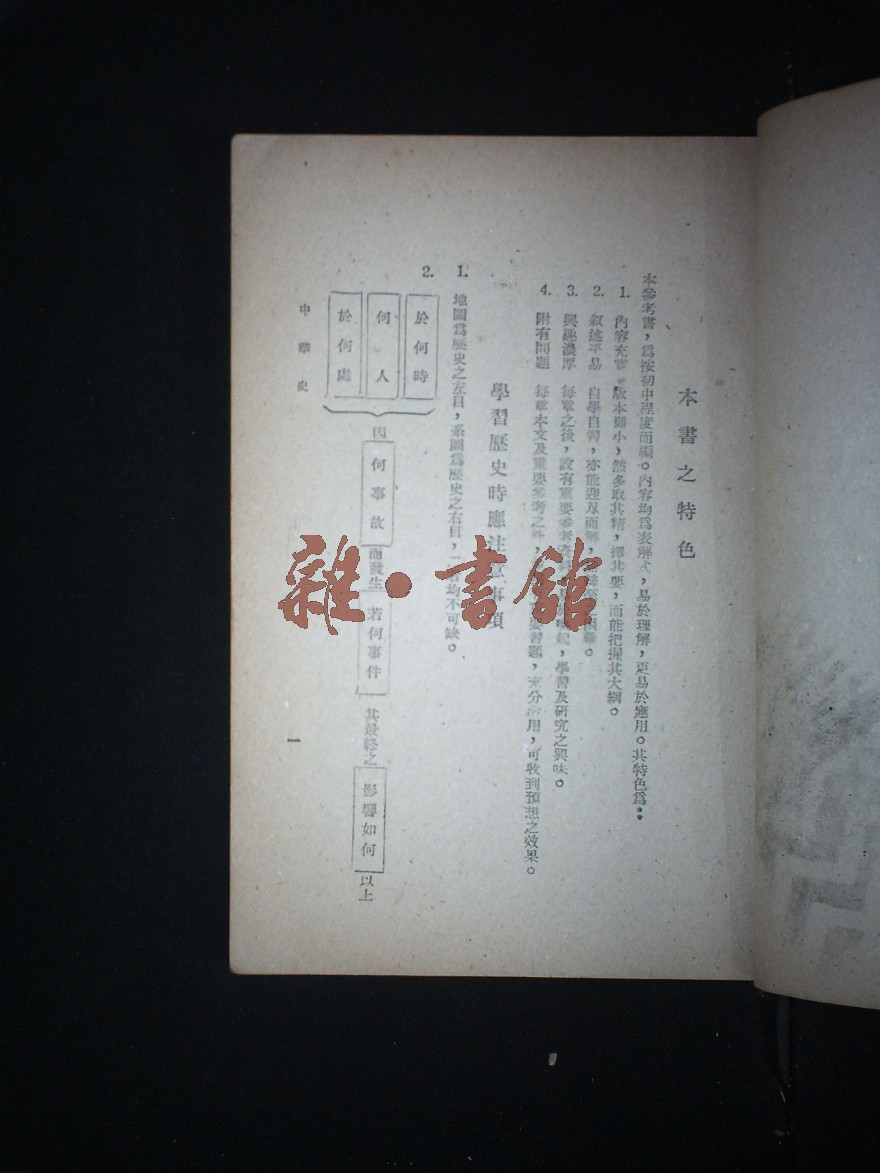 本書之特色
本參考書，為按初中程度而編。內容均為表解式，易於理解，更易於應用。其特色為：
1. 內容充實 版本雖小，然多取其精，擇其要，而能把握其大綱。
2. 叙述平易 自學自習，亦能迎刃而解，
3. 興趣濃厚 每章之後，設有重要參考 學習及研究之興味。
4. 附有問題 每章本文及重要參考之外， 要習題，充分 用，可收到預想之效果。
學習歷史時應注意事項
1. 地圖為歷史之左目，系圖為歷史之右目， 均不可缺。
2.
於何時
何人
於何處
因
何事故
而發生
若何事件
其最終之
影響如何
以上
中華史
一
雜·書館